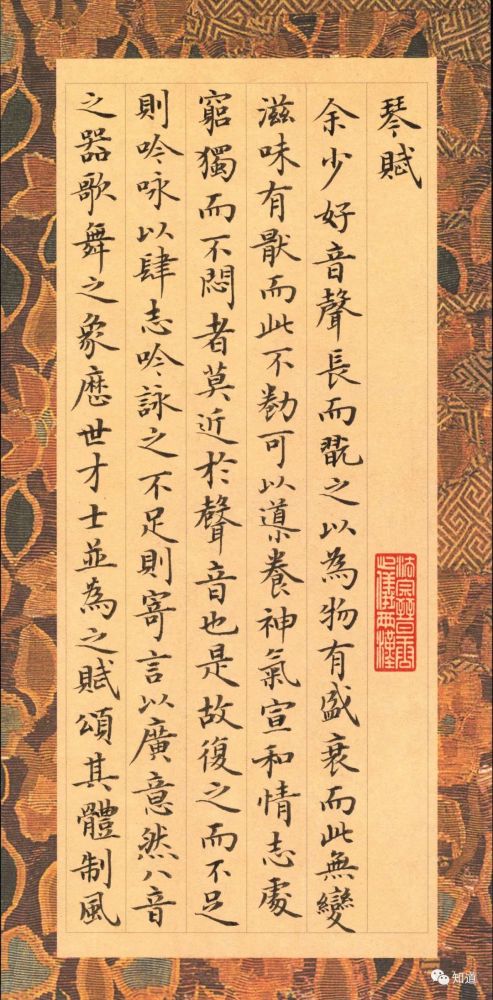 琴賦
余少好音聲長而翫之以為物有盛衰而此無變
滋味有厭而此不勌可以導養神氣宣和情志處
窮獨而不悶者莫近於聲音也是故復之而不足
則吟咏以肆志吟詠之不足則寄言以廣意然八音
之噐歌舞之象歷世才士並為之賦頌其體制風
法宗晉唐
儀兩漢
知道